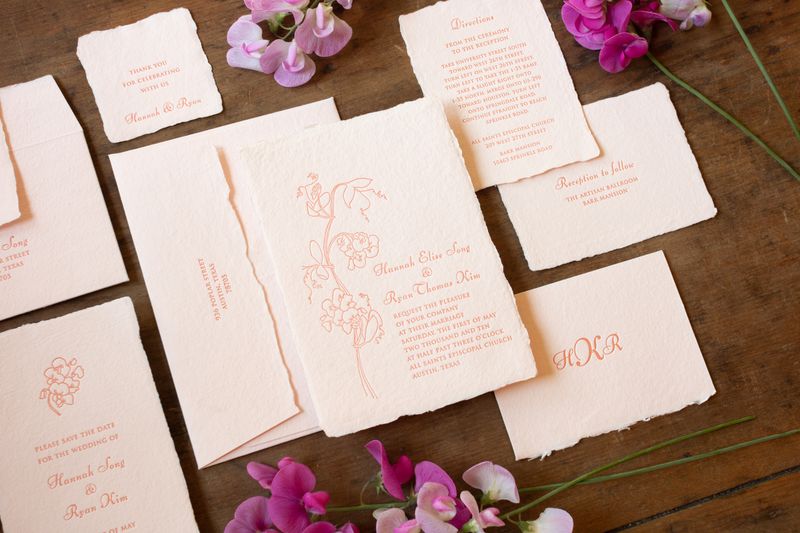 THANK YOU
FOR CELEBRATING
WITH US
Hannah & Ryan
Directions
FROM THE CEREMONY
TO THE RECEPTION
TAKE UNIVERSITY STREET SOUTH
TOWARD WEST 28TH STREET
TURN LEFT ON WEST 26TH STREET
TURN LEFT TO TAKE THE I-35 RAMP
TAKE A SLIGHT RIGHT ONTO
I-35 NORTH, MERGE ONTO US-290
TOWARD HOUSTON, TURN LEFT
ONTO SPRINGDALE ROAD
CONTINUE STRAIGHT TO REACH
SPRINKLE ROAD
ALL SAINTS EPISCOPAL CHURCH
209 WEST 27TH STREET
BARR MANSION
10463 SPRINKLE ROAD
Reception to follow
THE ARTISAN BALLROOM
BARR MANSION
Song
STREET
TEXAS
936 POPLAR STREET
AUSTIN, TEXAS
78705
Hannah Elise Song
&
Ryan Thomas Kim
REQUEST THE PLEASURE
OF YOUR COMPANY
AT THEIR MARRIAGE
SATURDAY, THE FIRST OF MAY
TWO THOUSAND AND TEN
AT HALF PAST THREE O'CLOCK
ALL SAINTS EPISCOPAL CHURCH
AUSTIN, TEXAS
HKR
PLEASE SAVE THE DATE
FOR THE WEDDING OF
Hannah Song
&
Ryan Kim
OF MAY